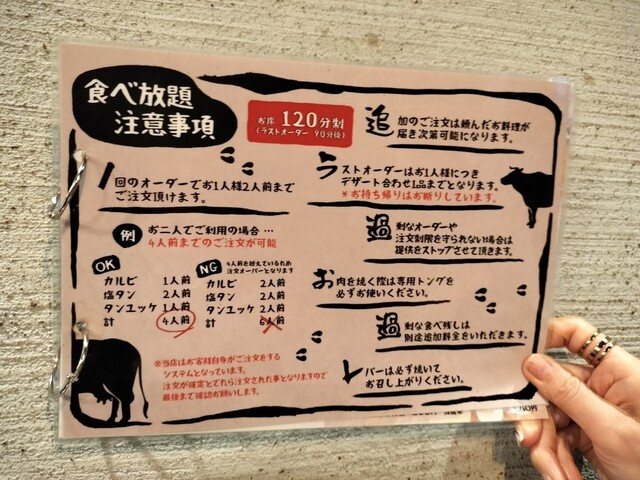 食べ放題
注意事項
お席 120分制
(ラストオーダー 90分後)
1回のオーダーでお1人様2人前まで
ご注文頂けます。
例 お二人でご利用の場合…
4人前までのご注文が可能
OK
カルビ 1人前
塩タン 2人前
タンユッケ 1人前
計 4人前
NG 4人前を越えているため
注文オーバーとなります
カルビ 2人前
塩タン 2人前
タンユッケ 2人前
計 6人前
※当店はお客様自身がご注文をする
システムとなっています。
注文が確定とでたら注文された事となりますので
最後まで確認お願いします。
追加のご注文は頼んだお料理が
届き次第可能になります。
ラストオーダーはお1人様につき
デザート合わせ1品までとなります。
*お持ち帰りはお断りしています。
過剰なオーダーや
注文制限を守られない場合は
提供をストップさせて頂きます。
お肉を焼く際は専用トングを
必ずお使いください。
過剰な食べ残しは
別途追加料金をいただきます。
レバーは必ず焼いて
お召し上がりください。